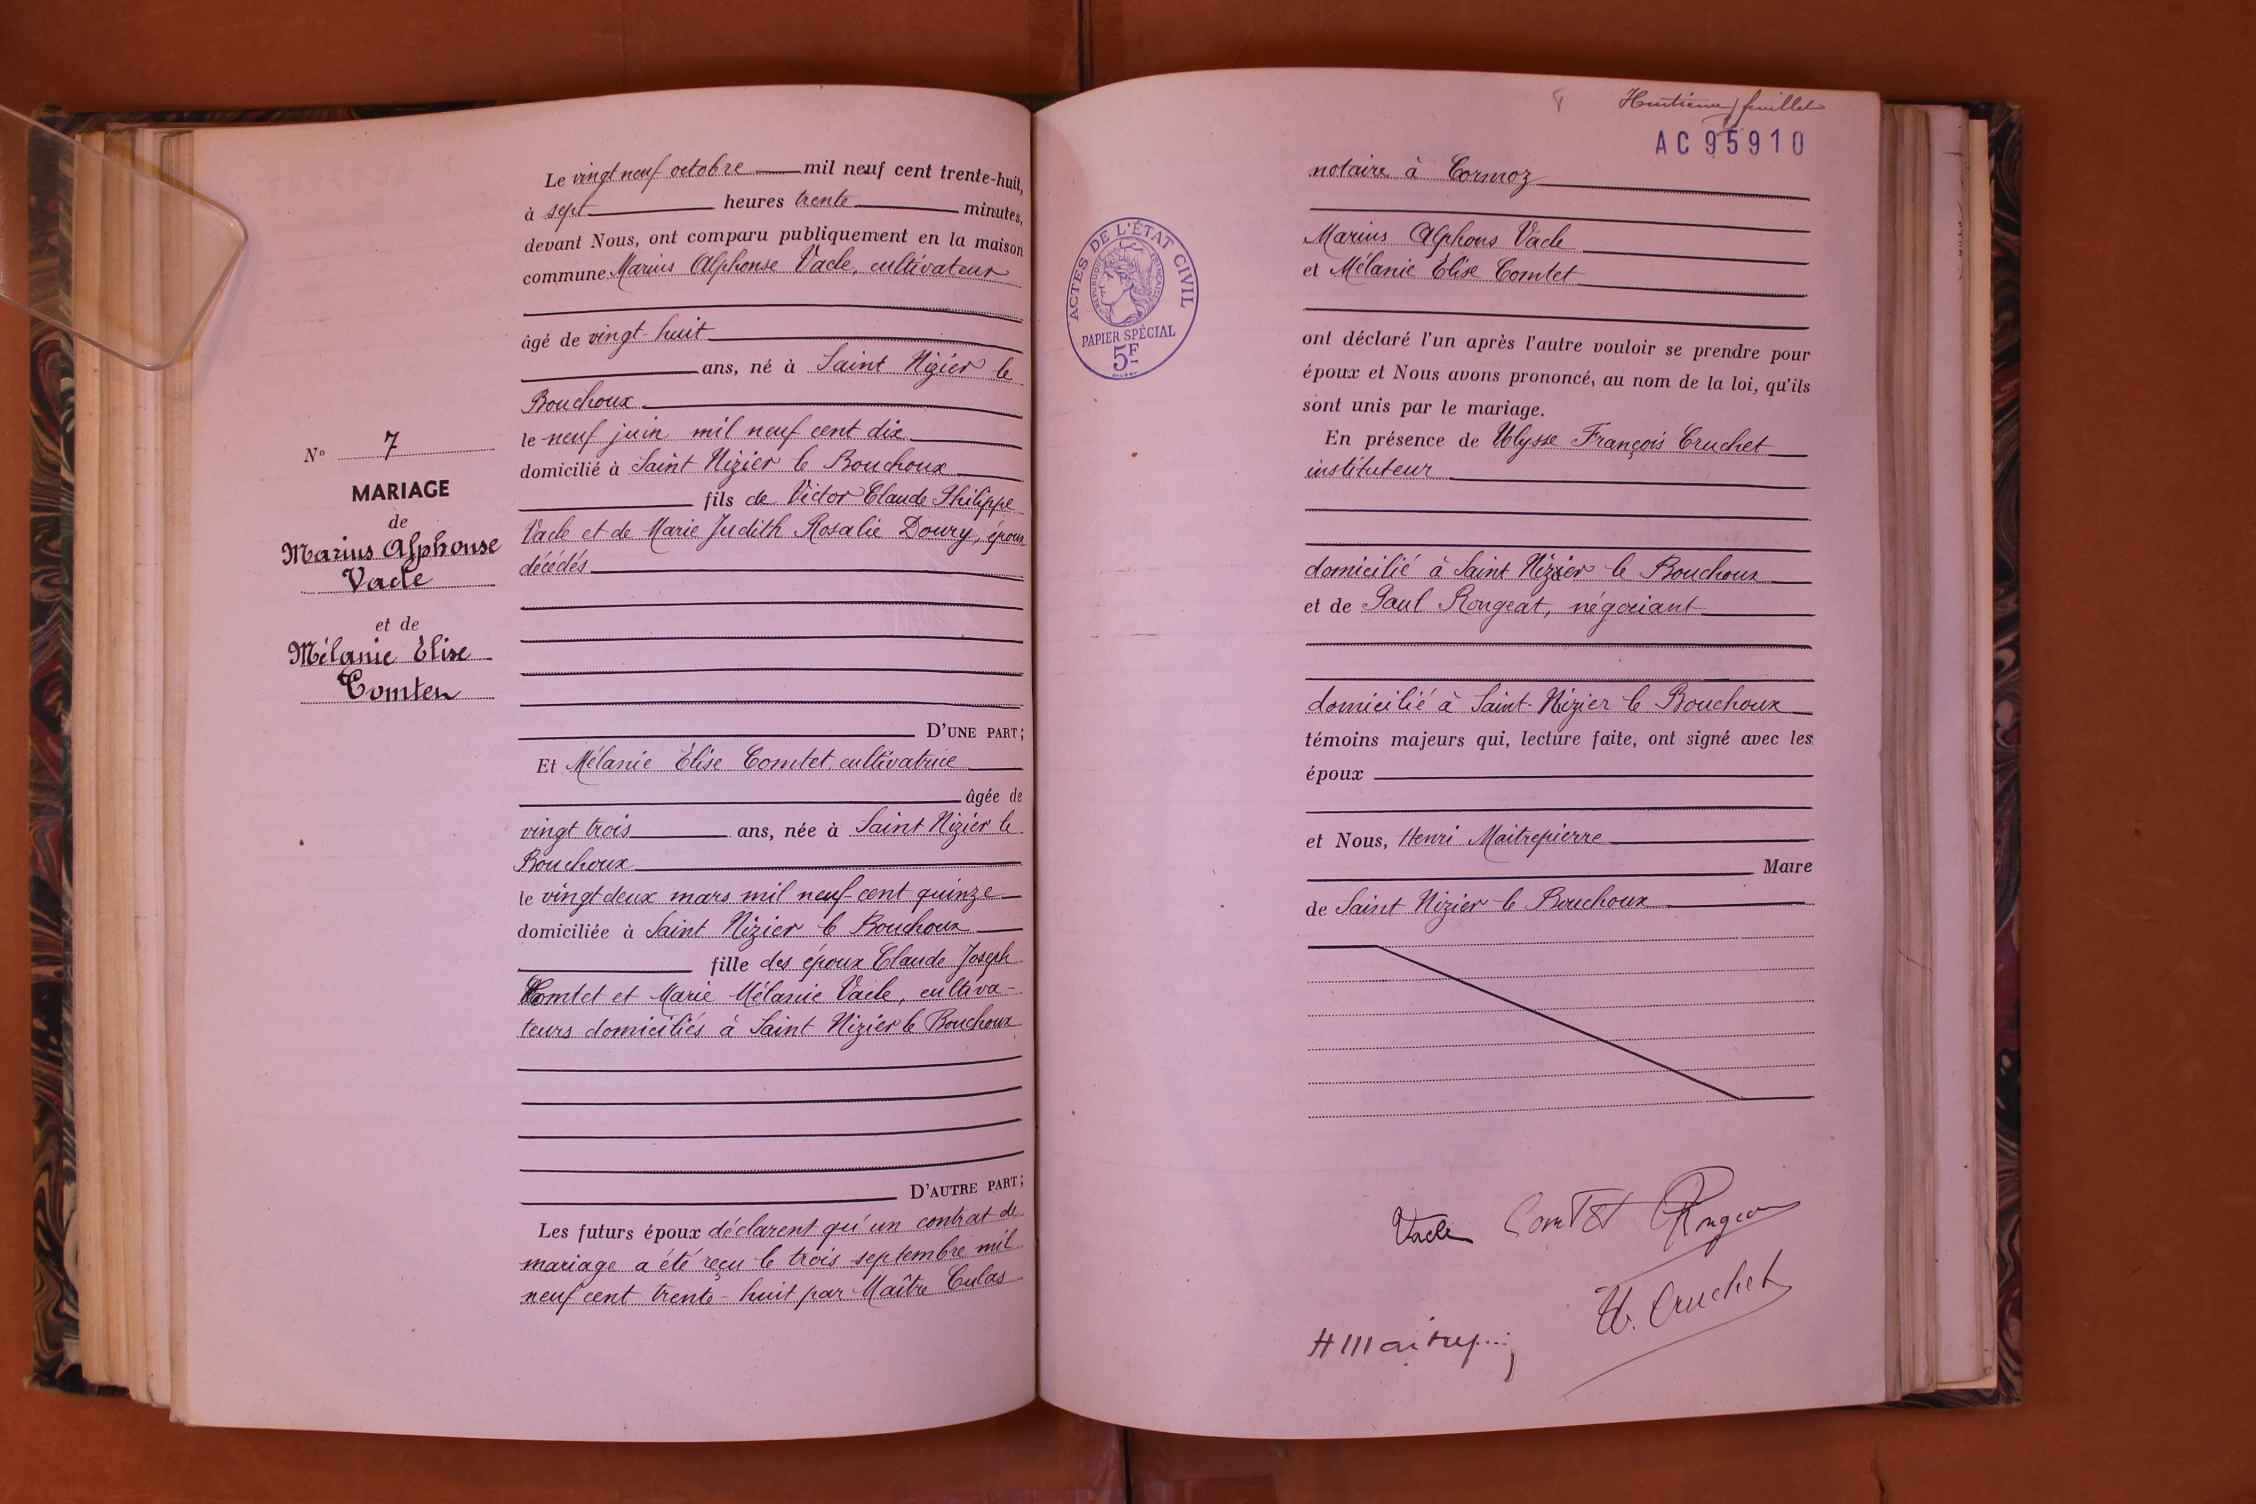 N° 7
MARIAGE
de
Marius Alphonse
Vacle
et de
Mélanie Elise
Comtet
Le vingt neuf octobre mil neuf cent trente-huit,
à sept heures trente minutes,
devant Nous, ont comparu publiquement en la maison
commune Marius Alphonse Vacle, cultivateur
âgé de vingt huit
ans, né à Saint Nizier le
Bouchoux
le neuf juin mil neuf cent dix
domicilié à Saint Nizier le Bouchoux
fils de Victor Claude Philippe
Vacle et de Marie Judith Rosalie Doury, époux
décédés
D'UNE PART;
Et Mélanie Elise Comtet, cultivatrice
âgée de
vingt trois ans, née à Saint Nizier le
Bouchoux
le vingt deux mars mil neuf cent quinze
domiciliée à Saint Nizier le Bouchoux
fille des époux Claude Joseph
Comtet et Marie Mélanie Vacle, cultiva-
teurs domiciliés à Saint Nizier le Bouchoux
D'AUTRE PART;
Les futurs époux déclarent qu'un contrat de
mariage a été reçu le trois septembre mil
neuf cent trente-huit par Maître Culas
Huitième feuillet
AC 95910
ACTES DE L'ÉTAT CIVIL
RÉPUBLIQUE FRANÇAISE
PAPIER SPÉCIAL
5F
notaire à Cormoz
Marius Alphons Vacle
et Mélanie Elise Comtet
ont déclaré l'un après l'autre vouloir se prendre pour
époux et Nous avons prononcé, au nom de la loi, qu'ils
sont unis par le mariage.
En présence de Ulysse François Cruchet
instituteur
domicilié à Saint Nizier le Bouchoux
et de Paul Rongeat, négociant
domicilié à Saint-Nizier le Bouchoux
témoins majeurs qui, lecture faite, ont signé avec les
époux
et Nous, Henri Maitrepierre
Maire
de Saint Nizier le Bouchoux
Vacle Comtet
U. Cruchet